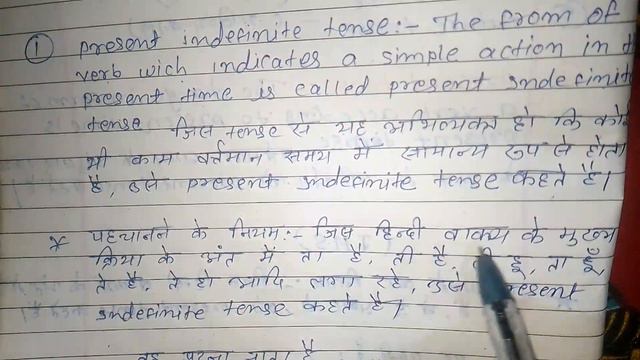 ① present indefinite tense:- The from of
verb wich indicates a simple action in
present time is called present indefinit
tense जिस tense से यह अभिव्यक्त हो कि को
भी काम वर्तमान समय में सामान्य रूप से होता
है, उसे present indefinite tense कहते है।
* पहचानने के नियम:- जिस हिन्दी वाक्य के मुख्य
क्रिया के अंत में ता है, ती है, हूँ, ता हूँ
ते है, ते हो आदि लगा रहे, उसे present
indefinite tense कहते है।